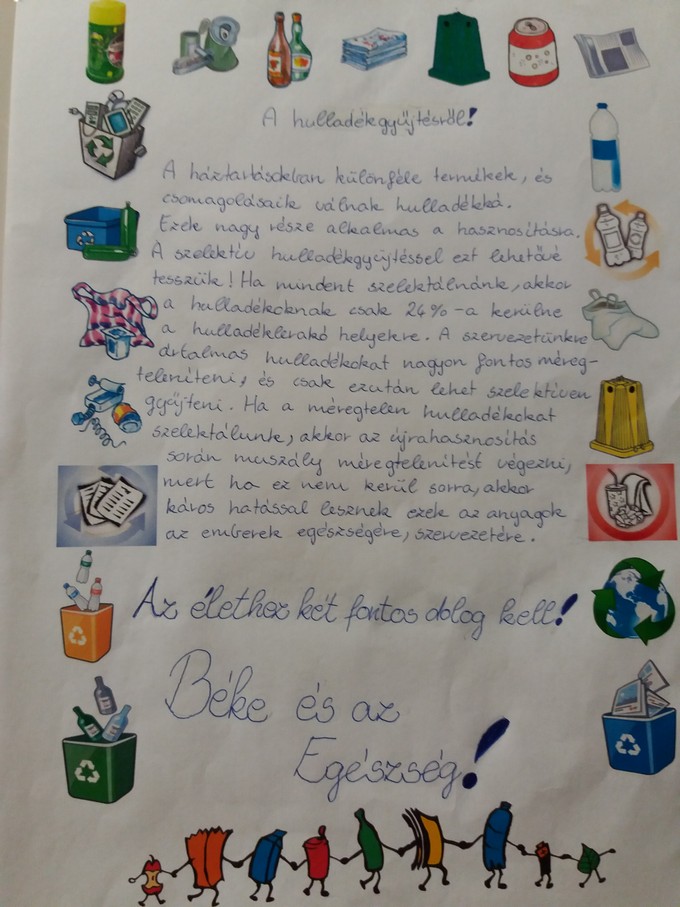 A hulladékgyűjtésről!
A háztartásokban különféle termékek, és
csomagolásaik válnak hulladékká.
Ezek nagy része alkalmas a hasznosításra.
A szelektív hulladékgyűjtéssel ezt lehetővé
tesszük! Ha mindent szelektálnánk, akkor
a hulladékoknak csak 24%-a kerülne
a hulladéklerakó helyekre. A szervezetünkre
ártalmas hulladékokat nagyon fontos méreg-
teleníteni, és csak ezután lehet szelektíven
gyűjteni. Ha a méregtelen hulladékokat
szelektálunk, akkor az újrahasznosítás
során muszály méregtelenítést végezni,
mert ha ez nem kerül sorra, akkor
káros hatással lesznek ezek az anyagok
az emberek egészségére, szervezetére.
Az élethez két fontos dolog kell!
Béke és az
Egészség!